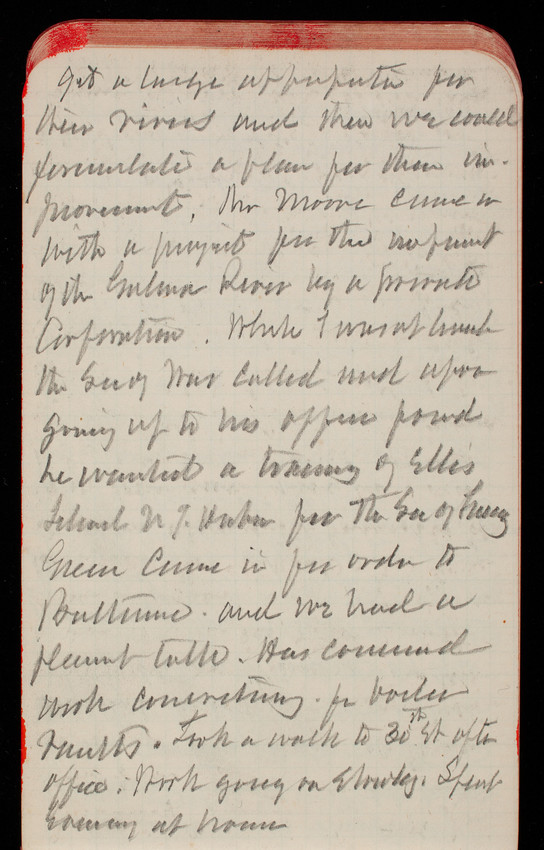 get a large appropriation for
their rivers and then we could
formulate a plan for their im-
provement. Mr Moore came in
with a project for the improvmt
of the River by a private
Corporation. While I was at lunch
the Secy War called and upon
going up to his office found
he wanted a tracing of Ellis
Island N.Y. Harbor for the Secy of Treasy
Green came in for order to
Baltimore. and we had a
pleasant talk. Has commenced
work concreting. for boiler
vaults. Took a walk to 30th St after
office. Work going on slowly. Spent
Evening at home